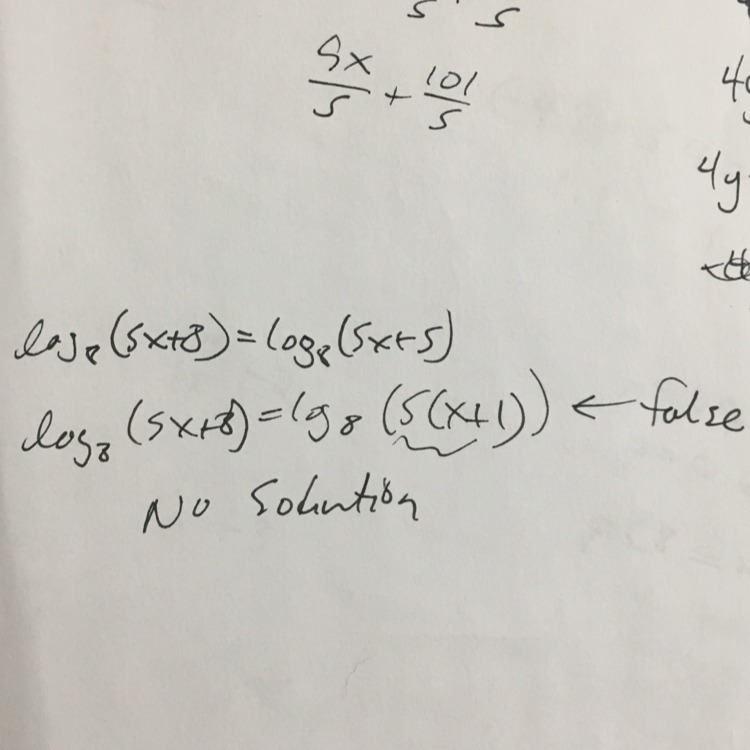 5 5
5x/5 + 101/5
4y
log₈(5x+8)=log₈(5x+5)
log₈(5x+8)=lg₈(5(x+1)) ← false
No Solution